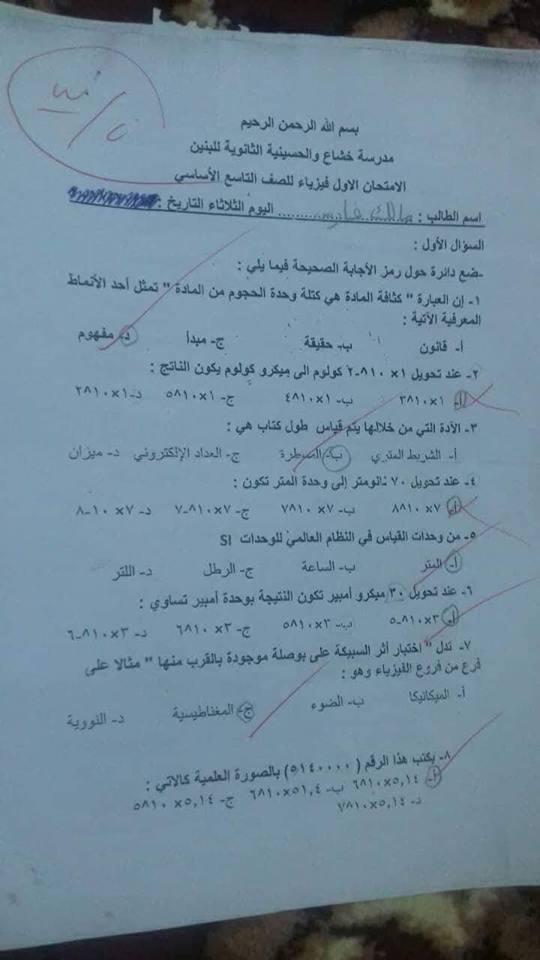 بسم الله الرحمن الرحيم
مدرسة خشاع والحسينية الثانوية للبنين
الامتحان الاول فيزياء للصف التاسع الأساسي
اسم الطالب : ............ اليوم الثلاثاء التاريخ :
السؤال الأول :
-ضع دائرة حول رمز الأجابة الصحيحة فيما يلي :
١- إن العبارة " كثافة المادة هي كتلة وحدة الحجوم من المادة " تمثل أحد الأنماط
المعرفية الآتية :
أ- قانون ب- حقيقة ج- مبدأ د- مفهوم
٢- عند تحويل ١× ١٠^-٢ كولوم الى ميكرو كولوم يكون الناتج :
أ- ١×١٠^٣ ب- ١×١٠^٤ ج- ١×١٠^٥ د- ١×١٠^٢
٣- الآدة التي من خلالها يتم قياس طول كتاب هي :
أ- الشريط المتري ب- المسطرة ج- العداد الإلكتروني د- ميزان
٤- عند تحويل ٧٠ نانومتر إلى وحدة المتر تكون :
أ- ٧× ١٠^٨ ب- ٧× ١٠^٧ ج- ٧×١٠^-٧ د- ٧× ١٠-٨
٥- من وحدات القياس في النظام العالمي للوحدات SI
أ- المتر ب- الساعة ج- الرطل د- اللتر
٦- عند تحويل ٣٠ ميكرو أمبير تكون النتيجة بوحدة أمبير تساوي :
أ- ٣×١٠^-٥ ب- ٣×١٠^٥ ج- ٣× ١٠^٦ د- ٣× ١٠^-٦
٧- تدل " اختبار أثر السبيكة على بوصلة موجودة بالقرب منها " مثالا على
فرع من فروع الفيزياء وهو :
أ- الميكانيكا ب- الضوء ج- المغناطيسية د- النووية
٨- يكتب هذا الرقم ( ٥١٤٠٠٠٠ ) بالصورة العلمية كالاتي :
أ- ٥,١٤×١٠^٦ ب- ٥١,٤×١٠^٦ ج- ٥,١٤× ١٠^٥
د- ٥,١٤×١٠^٧